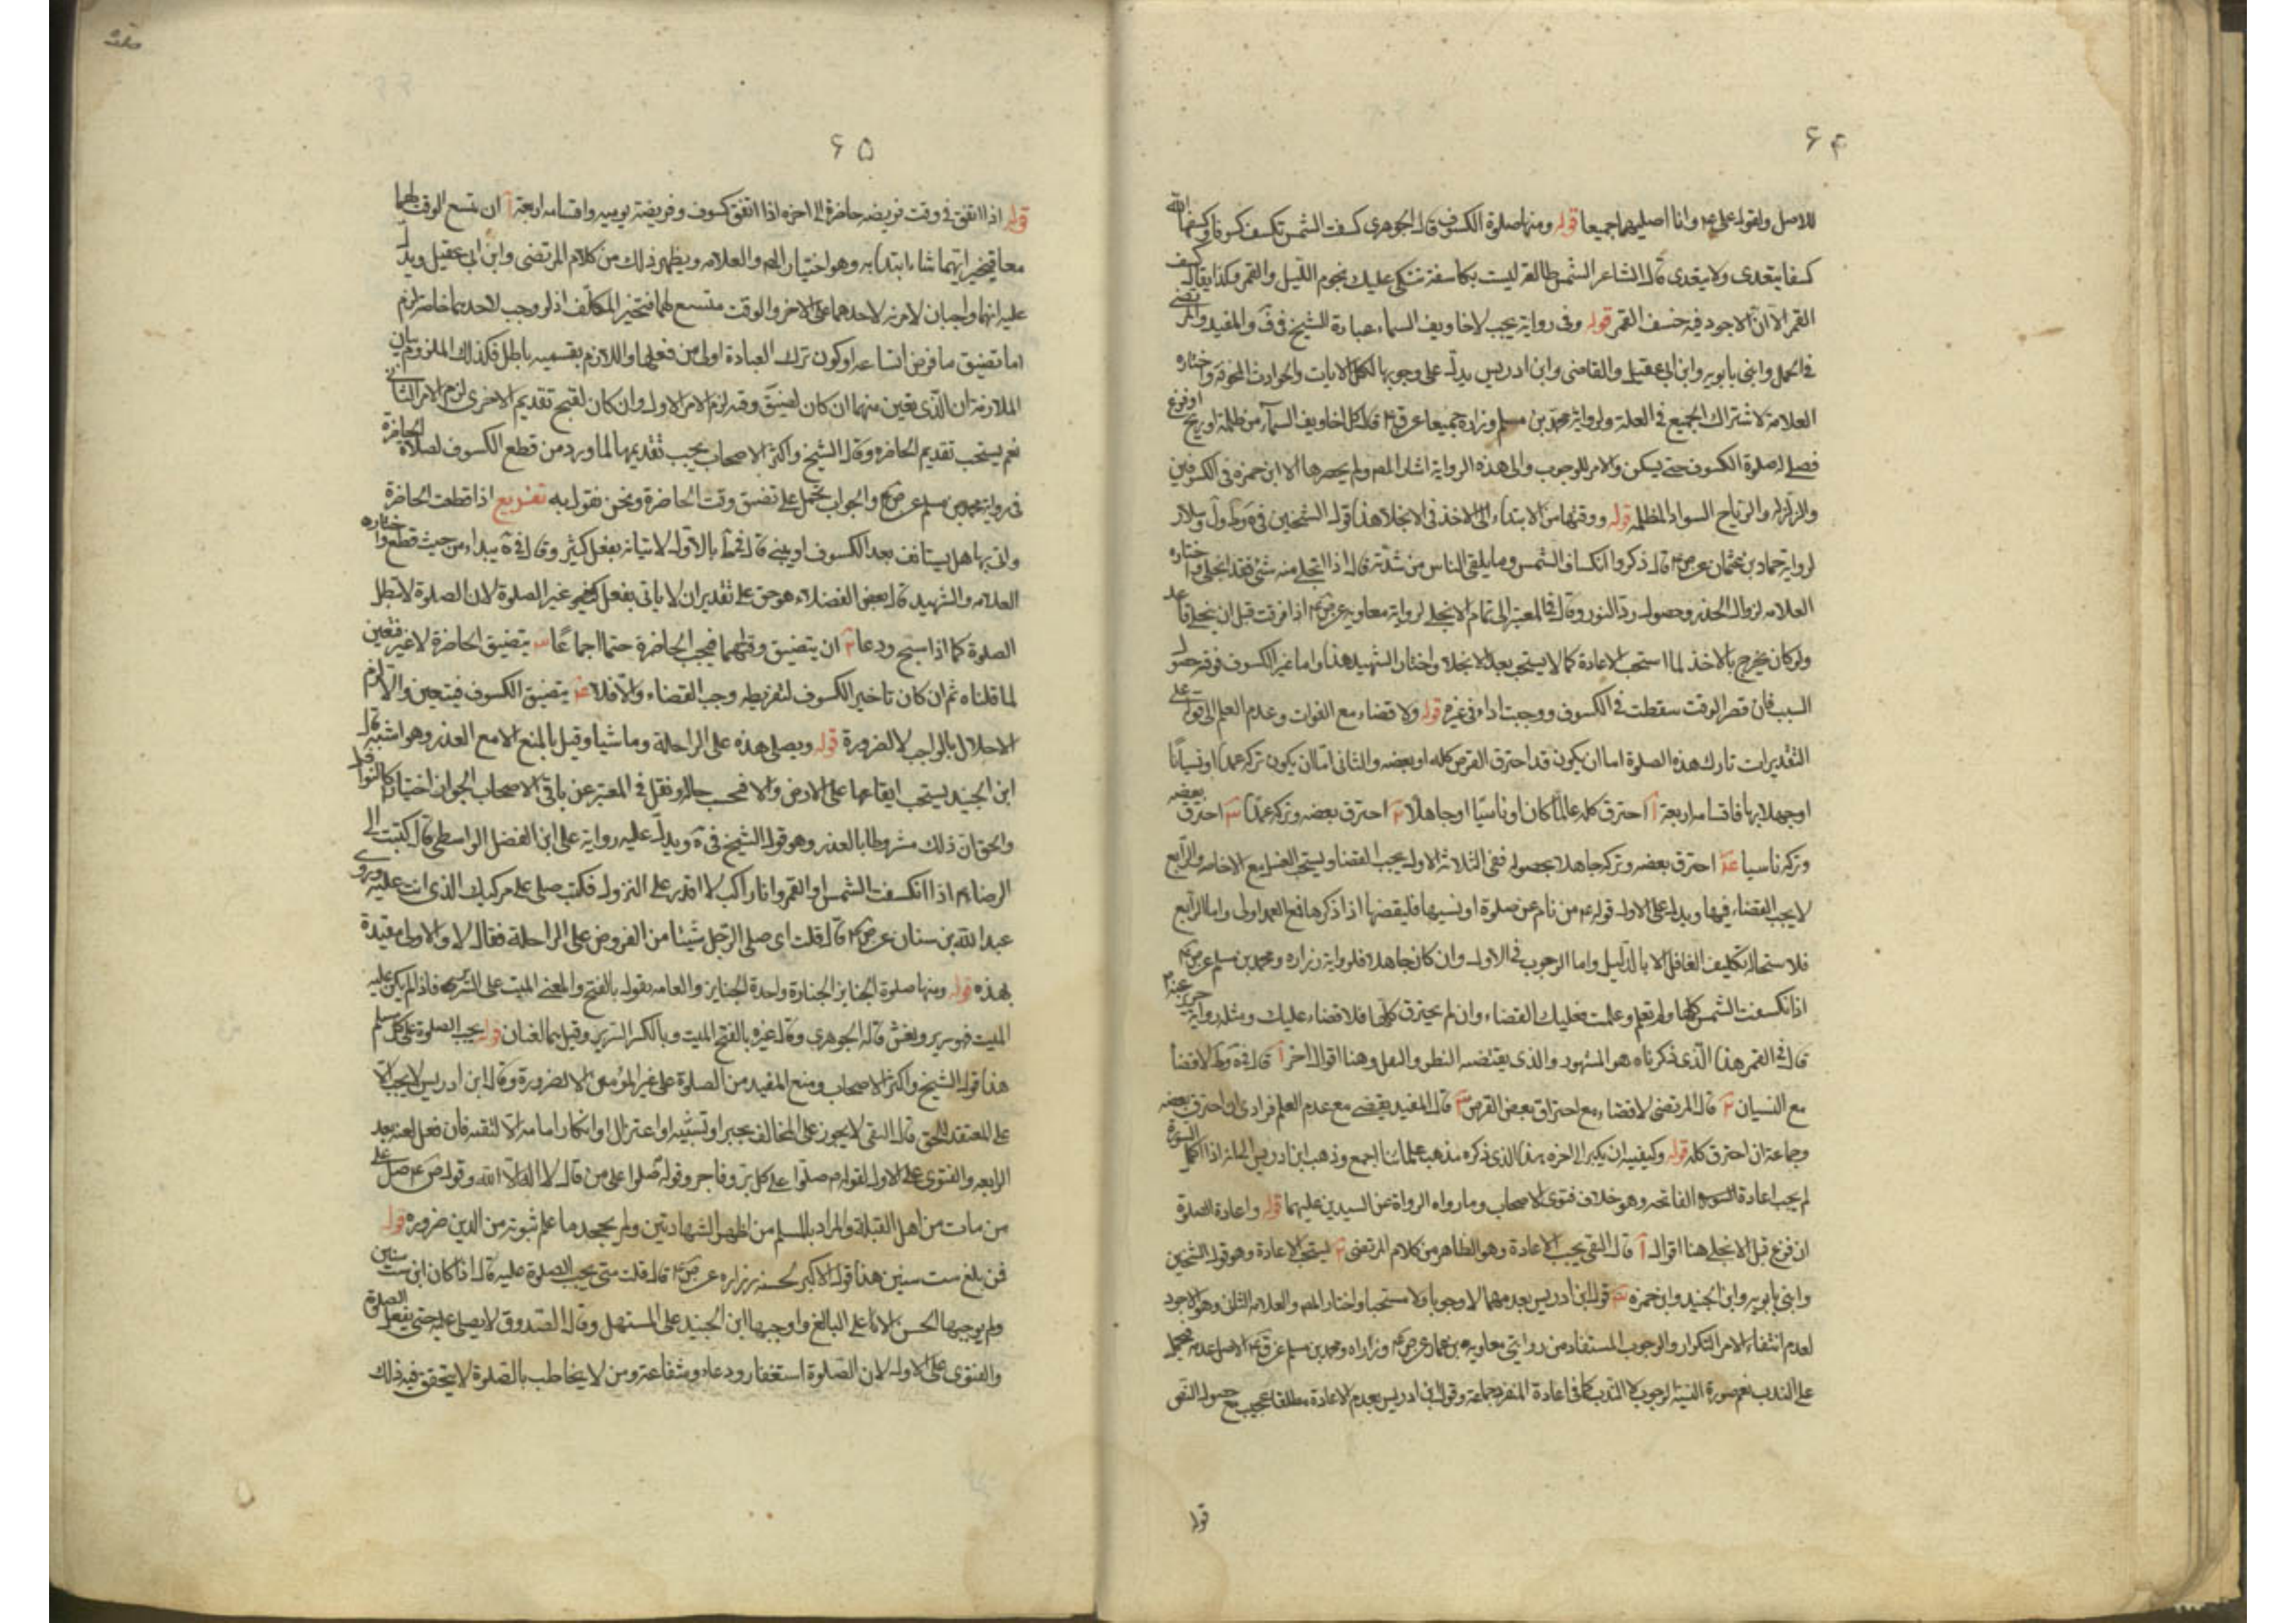 ۶۴
للاصل ولقوله علی ع۴ وانا اصلیهما جمیعا قوله ومنها صلوة الکسوف قال الجوهری کسفت الشمس تکسف کسوفا وکسفها الله
کسفا یتعدی ولا یتعدی قال الشاعر الشمس طالعة لیست بکاسفة تبکی علیک نجوم اللیل والقمر وکذا یقال کسف
القمر الا ان الاجود فیه خسف القمر قوله وفی روایة یجب لاخاویف السماء عبارة الشیخ فی ف والمفید والمرتضی
فی الجمل وابنی بابویه وابن ابی عقیل والقاضی وابن ادریس یدل علی وجوبها لکل الایات والحوادث المخوفة واختاره
العلامة لاشتراک الجمیع فی العلة ولروایة محمد بن مسلم وزرارة جمیعا عن ق۴ قال کل اخاویف السماء من ظلمة او ریح او فزع
فصل له صلوة الکسوف حتی یسکن والامر للوجوب والی هذه الروایة اشار المص ولم یحصرها الا ابن حمزه فی الکسوفین
والزلزله والریاح السواد المظلمه قوله ووقتها من الابتداء الی الاخذ فی الانجلا هذا قول الشیخین فی یه وط ول وسلار
لروایة حماد بن عثمان عن ص۴ قال ذکروا انکساف الشمس وما یلقی الناس من شدته قال اذا انجلی منه شئ فقد انجلی واختاره
العلامه لزوال الحذر وحصول رد النور وقال فی المعتبر الی تمام الانجلی لروایة معاویه عن ص۴ اذا فرغت قبل ان ینجلی فاعد
ولو کان یخرج بالاخذ لما استحب الاعادة کما لا یستحب بعد الانجلا واختار الشهید هذا واما غیر الکسوف فوقته حصول
السبب فان قصر الوقت سقطت فی الکسوف ووجبت اداء فی غیره قوله ولا قضاء مع الفوات وعدم العلم الی قوله علی
التقدیرات تارک هذه الصلوة اما ان یکون قد احترق القرص کله او بعضه والثانی اما ان یکون ترکه عمدا او نسیانا
او جهلا بها فاقسامه اربعة آ احترق کله عالما کان او ناسیا او جاهلا ۲ احترق بعضه وترکه عمدا ۳ احترق بعضه
وترکه ناسیا ع۴ احترق بعضه وترکه جاهلا بحصوله ففی الثلاثة الاوله یجب القضا ویستحب الغسل مع الاخاصه والرابع
لا یجب القضاء فیها ویدل علی الاوله قوله ع۴ من نام عن صلوة او نسیها فلیقضها اذا ذکرها فع العمد اولی واما الرابع
فلاستحالة تکلیف الغافل الا بالدلیل واما الوجوب فی الاوله وان کان جاهلا فلروایة زراره ومحمد بن مسلم عن ص۴
اذا انکسفت الشمس کلها ولم تعلم وعلمت فعلیک القضاء وان لم یحترق کلها فلا قضاء علیک ومثله روایة حریز عنه۴
قال فی القمر هذا الذی ذکرناه هو المشهور والذی یقتضیه النظر والنقل وهنا اقوال اخر آ قال فی یه وط لا قضا
مع النسیان ۲ قال المرتضی لا قضاء مع احتراق بعض القرص ۳ قال المفید یقضی مع عدم العلم فرادی ان احترق بعضه
وجماعة ان احترق کله قوله وکیفیته ان یکبر الی اخره هذا الذی ذکره مذهب علمائنا اجمع وذهب ابن ادریس الی انه اذا اکمل السورة
لم یجب اعادة الفاتحه وهو خلاف فتوی الاصحاب وما رواه الرواة عن السیدین علیهما قوله واعادة الصلوة
ان فرغ قبل الانجلی هنا اقوال آ قال التقی یجب الاعادة وهو الظاهر من کلام المرتضی ۲ یستحب الاعادة وهو قول الشیخین
وابنی بابویه وابن الجنید وابن حمزه ۳ قول ابن ادریس بعدمهما لا وجوبا ولا مستحبا واختار المص والعلامه الثانی وهو الاجود
لعدم انتفاء الامر التکرار والوجوب المستفاد من روایتی معاویه بن عمار عن ص۴ وزراره ومحمد بن مسلم عن ق۴ الاصل عدمه فیحمل
علی الندب نعم صورة النیة الوجوب لا الندب کما فی اعادة المنفرد جماعة وقول ابن ادریس بعدم الاعادة مطلقا عجیب مع حصول النص
قوله
۶۵
قوله اذا اتفق فی وقت فریضه حاضرة الی اخره اذا اتفق کسوف وفریضة یومیه واقسامه اربعة آ ان یتسع الوقت لهما
معا فیتخیر ایتهما شاء ابتدا به وهو اختیار المص والعلامه ویظهر ذلک من کلام المرتضی وابن ابی عقیل ویدل
علیه انهما واجبان لا مزیه لاحدهما علی الاخر والوقت متسع لهما فتخیر المکلف اذ لو وجب لاحدهما خاصه لزم
اما تضیق ما فرض اتساعه او کون ترک العبادة اولی من فعلها واللازم بقسمیه باطل فکذلک الملزوم بیان
الملازمة ان الذی یعین منهما ان کان لضیق وقته لزم الامر الاول وان کان لقبح تقدیم الاخری لزم الامر الثانی
نعم یستحب تقدیم الحاضره وقال الشیخ واکثر الاصحاب یجب تقدیمها لما ورد من قطع الکسوف لصلاة الحاضرة
فی روایة محمد بن مسلم عن ص۴ والجواب یحمل علی تضیق وقت الحاضرة ونحن نقول به تفریع اذا قطعت الحاضرة
واتی بها هل یستانف بعد الکسوف او یبنی قال فی ط بالاول لاتیانه بفعل کثیر وقال فی یه یبداء من حیث قطع واختاره
العلامه والشهید قال بعض الفضلاء هو حق علی تقدیر ان لا یاتی بفعل کثیر غیر الصلوة لان الصلوة لا تبطل
الصلوة کما اذا سبح ودعا ۲ ان یتضیق وقتهما فیجب الحاضرة حتما اجماعا ۳ یتضیق الحاضرة لا غیر فتعین
لما قلناه ثم ان کان تاخیر الکسوف لتفریطه وجب القضاء والا فلا ع۴ یتضیق الکسوف فیتعین والا لزم
الاخلال بالواجب لا لضرورة قوله ویصلی هذه علی الراحلة وماشیا وقیل بالمنع الا مع العذر وهو اشبه قال
ابن الجنید یستحب ایقاعها علی الارض والا فحسب حاله ونقل فی المعتبر عن باقی الاصحاب الجواز اختیارا کالنوافل
والحق ان ذلک مشروطا بالعذر وهو قول الشیخ فی یه ویدل علیه روایة علی ابن الفضل الواسطی قال کتبت الی
الرضا ع۴ اذا انکسفت الشمس او القمر وانا راکب لا اقدر علی النزول فکتب صلی علی مرکبک الذی انت علیه وروی
عبد الله بن سنان عن ص۴ قال قلت ای صلی الرجل شیئا من الفروض علی الراحلة فقال لا والاولی مقیدة
بهذه قوله ومنها صلوة الجنایز الجنازة واحدة الجنایز والعامه بقوله بالفتح والمعنی المیت علی السریر فاذا لم یکن علیه
المیت فهو سریر ونعش قاله الجوهری وقال غیره بالفتح المیت وبالکسر السریر وقیل هما لغتان قوله یجب الصلوة علی کل مسلم
هذا قول الشیخ واکثر الاصحاب ومنع المفید من الصلوة علی غیر المؤمن الا لضرورة وقال ابن ادریس لا یجب الا
علی المعتقد للحق قال التقی لا یجوز علی المخالف بجبر او تشبیه او اعتزال او انکار امامة الا لتقیة فان فعل لعنه بعد
الرابعه والفتوی علی الاوله لقوله ع۴ صلوا علی کل بر وفاجر وقوله صلوا علی من قال لا اله الا الله وقول ص ع۴ صل علی
من مات من اهل القبلة والمراد بالمسلم من اظهر الشهادتین ولم یجحد ما علم ثبوته من الدین ضروره قوله
فمن بلغ ست سنین هذا قول الاکثر لحسنه زراره عن ص۴ قال قلت متی یجب الصلوة علیه قال اذا کان ابن ست سنین
ولم یوجبها الحسن الا علی البالغ واوجبها ابن الجنید علی المستهل وقال الصدوق لا یصلی علیه حتی یعقل الصلوة
والفتوی علی الاوله لان الصلوة استغفار ودعاء وشفاعة ومن لا یخاطب بالصلوة لا یتحقق فیه ذلک